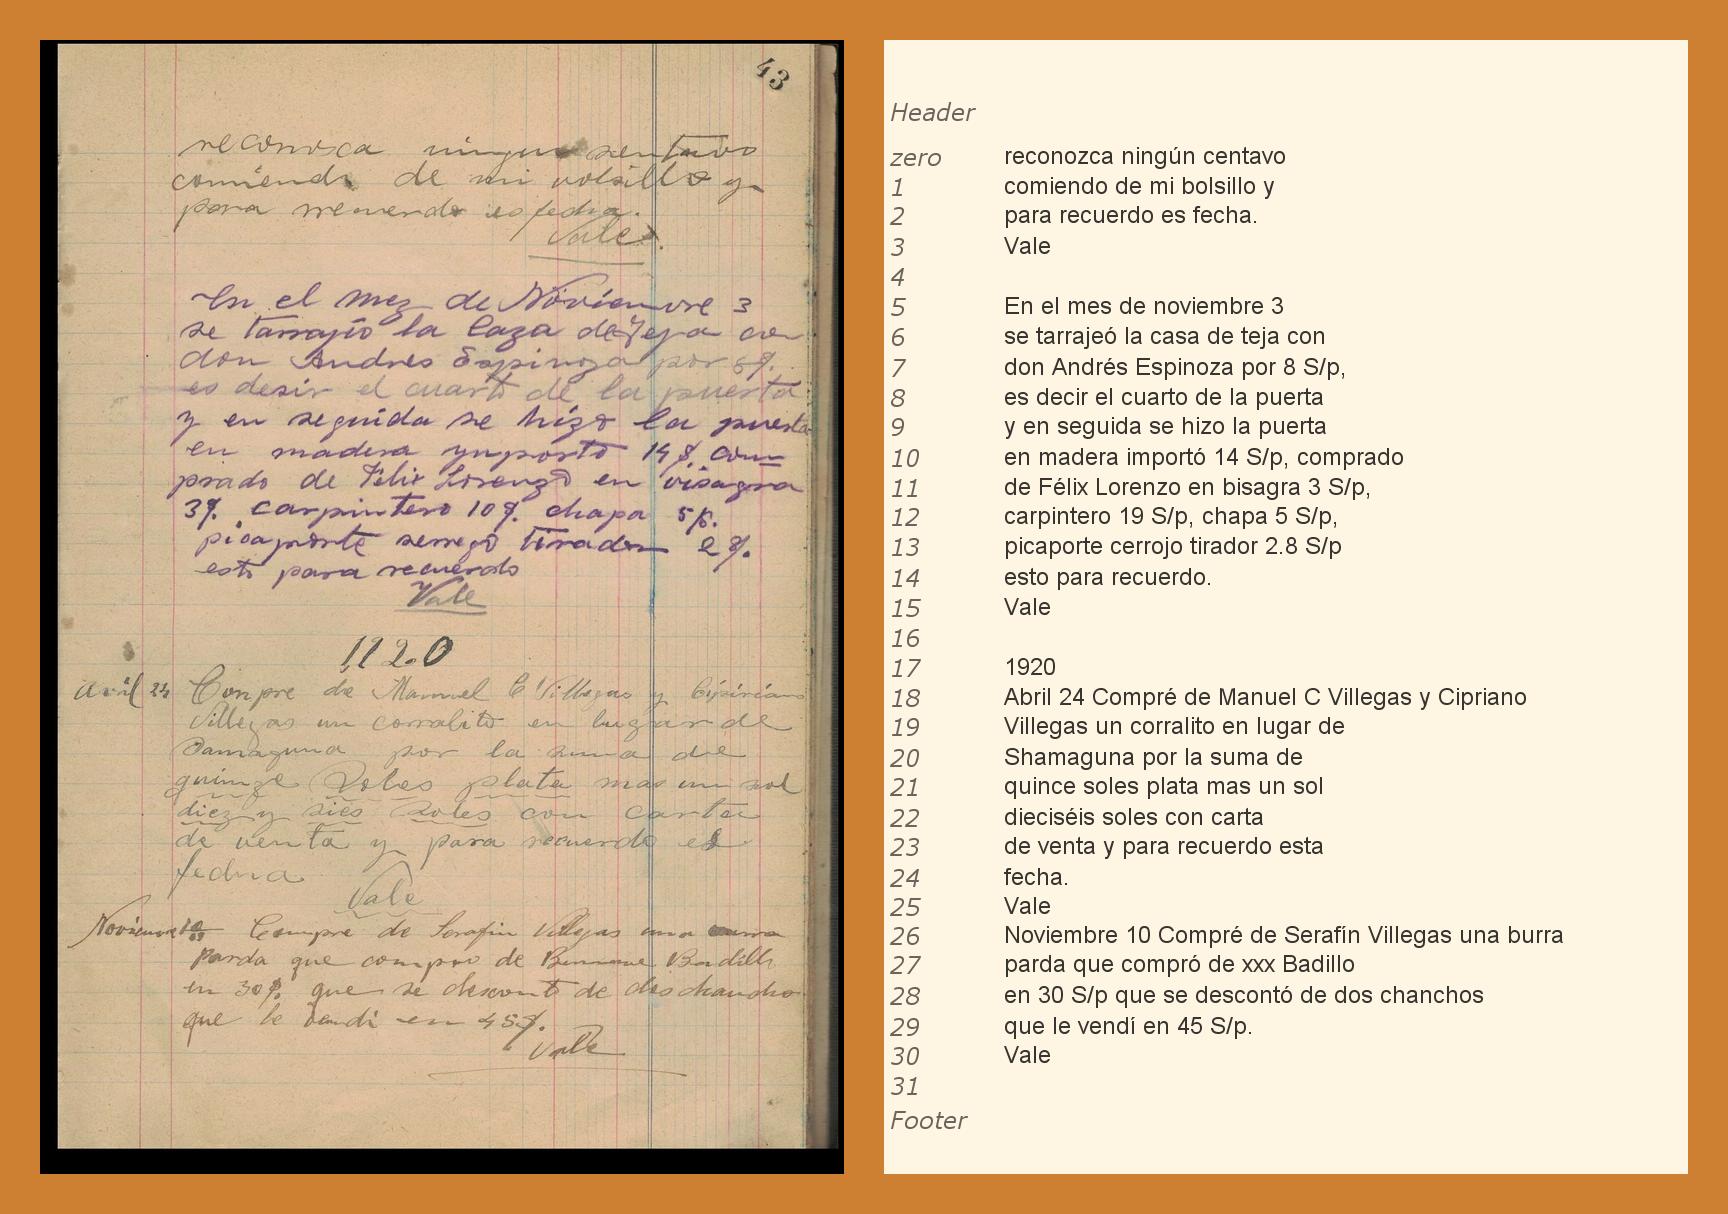 43
reconosca ningun sentavo
comiendo de mi volsillo y
para recuerdo es fecha.
Vale.
En el mez de Noviemvre 3
se tarrajio la Caza de Teja con
don Andres Espinoza por 8$.
es desir el cuarto de la puerta
y en seguida se hizo la puerta
en madera ymporto 14$. com-
prado de Felix Lorenzo en visagra
3$. carpintero 10$. chapa 5$.
picaporte serrojo tirador 2$.
esto para recuerdo
Vale
1920
Avril 24 Conpre de Manuel C Villegas y Cipiriano
Villegas un corralito en lugar de
por la suma de
quinze Soles plata mas un sol
diez y sies Soles con carta
de venta y para recuerdo es
fecha
Vale
Noviemvre 10 Compre de Serafin Villegas una burra
Parda que compro de Badillo
en 30$. que se desconto de dos chancho
que le bendi en 45$.
Vale
Header
zero reconozca ningún centavo
1 comiendo de mi bolsillo y
2 para recuerdo es fecha.
3 Vale
4
5 En el mes de noviembre 3
6 se tarrajeó la casa de teja con
7 don Andrés Espinoza por 8 S/p,
8 es decir el cuarto de la puerta
9 y en seguida se hizo la puerta
10 en madera importó 14 S/p, comprado
11 de Félix Lorenzo en bisagra 3 S/p,
12 carpintero 19 S/p, chapa 5 S/p,
13 picaporte cerrojo tirador 2.8 S/p
14 esto para recuerdo.
15 Vale
16
17 1920
18 Abril 24 Compré de Manuel C Villegas y Cipriano
19 Villegas un corralito en lugar de
20 Shamaguna por la suma de
21 quince soles plata mas un sol
22 dieciséis soles con carta
23 de venta y para recuerdo esta
24 fecha.
25 Vale
26 Noviembre 10 Compré de Serafín Villegas una burra
27 parda que compró de xxx Badillo
28 en 30 S/p que se descontó de dos chanchos
29 que le vendí en 45 S/p.
30 Vale
31
Footer